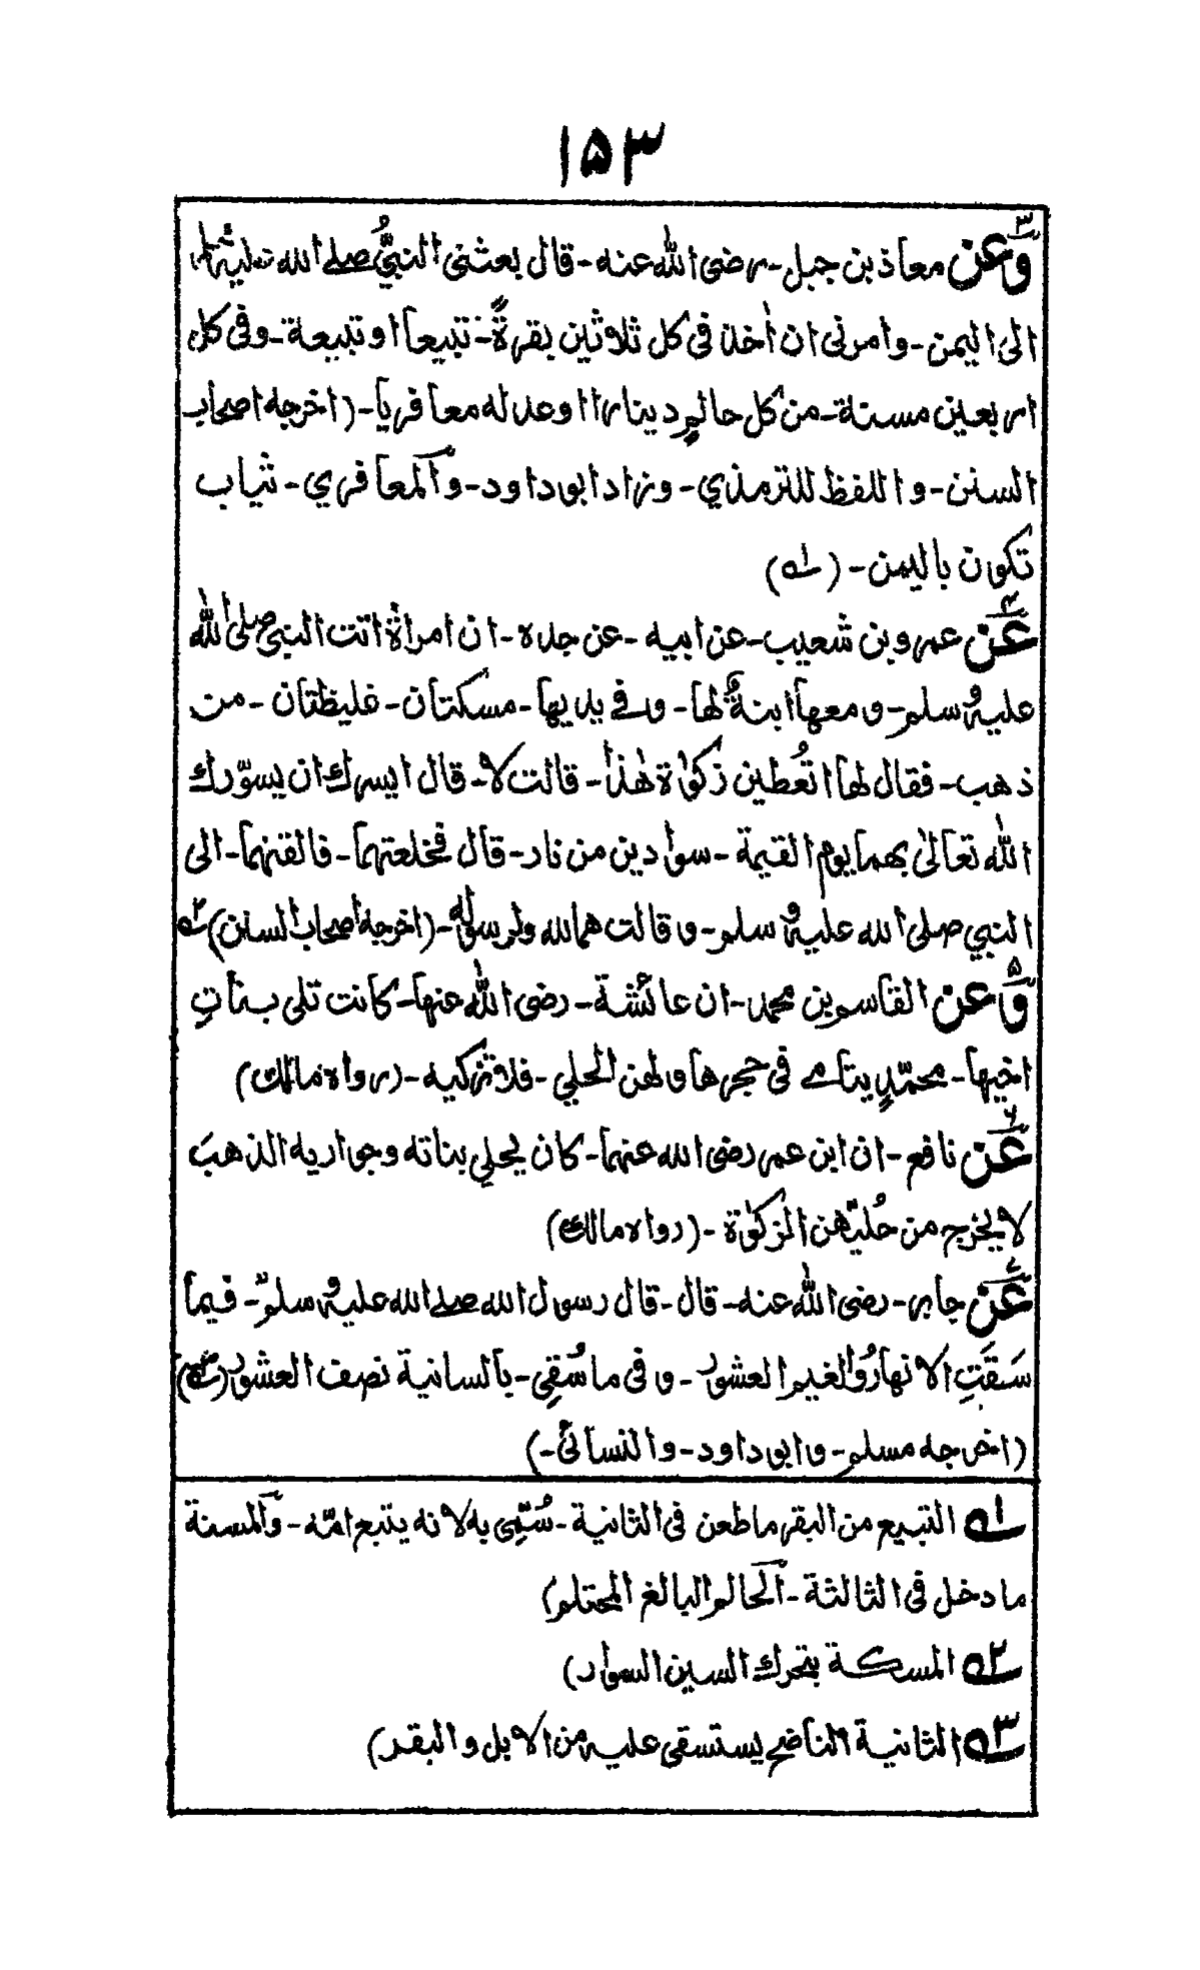 ۱۵۳
۳ وَعن معاذ بن جبل- رضی اللہ عنه- قال بعثنی النبیُّ صلے اللہ علیہ وسلم
الی الیمن- وامرنی ان اٰخذ فی کل ثلاثین بقرةً- تبیعا او تبیعة- وفی کل
اربعین مسنة- من کل حالمٍ دینارا اوعدله معافریا- (اخرجه اصحاب
السنن- واللفظ للترمذي- وزاد ابوداود- والمعافري- ثیاب
تکون بالیمن- (۱ه)
۴ عَن عمرو بن شعیب- عن ابیه- عن جده- ان امرأة اتت النبی صلی اللہ
علیہ وسلم- ومعها ابنةٌ لها- وفے یدیها- مسکتان- غلیظتان- من
ذهب- فقال لها اتُعطین زکوٰة هٰذا- قالت لا- قال ایسرك ان یسوّرك
اللہ تعالیٰ بهما یوم القیمة- سوادین من نار- قال فخلعتهما- فالقتهما- الی
النبي صلی اللہ علیہ وسلم- وقالت هما للہ ولرسوله- (اخرجه اصحاب السنن) ۲ه
۵ وَعن القاسم بن محمد- ان عائشة- رضی اللہ عنها- کانت تلی بناتِ
اخیها- محمّدٍ یتامے فی حجرها ولهن الحلي- فلا تزکیه- (رواه مالك)
۶ عَن نافع- ان ابن عمر رضی اللہ عنهما- کان یحلي بناته وجواریه الذهبَ
لا یخرج من حُلیّهن الزکوٰة- (رواه مالك)
۷ عَن جابر- رضی اللہ عنه- قال- قال رسول اللہ صلے اللہ علیہ وسلم- فیما
سَقَتِ الانهارُ والغیم العشور- وفی ما سُقِی- بالسانیة نصف العشور (۳ه)
(اخرجه مسلم- وابوداود- والنسائی-)
۱ه التبیع من البقر ما طعن فی الثانیة- سُمّی به لانه یتبع امّه- والمسنة
ما دخل فی الثالثة- الحالم البالغ المحتلم)
۲ه المسکة بتحرك السین السوار)
۳ه الثانیة الناضح یستسقی علیه من الابل والبقر)